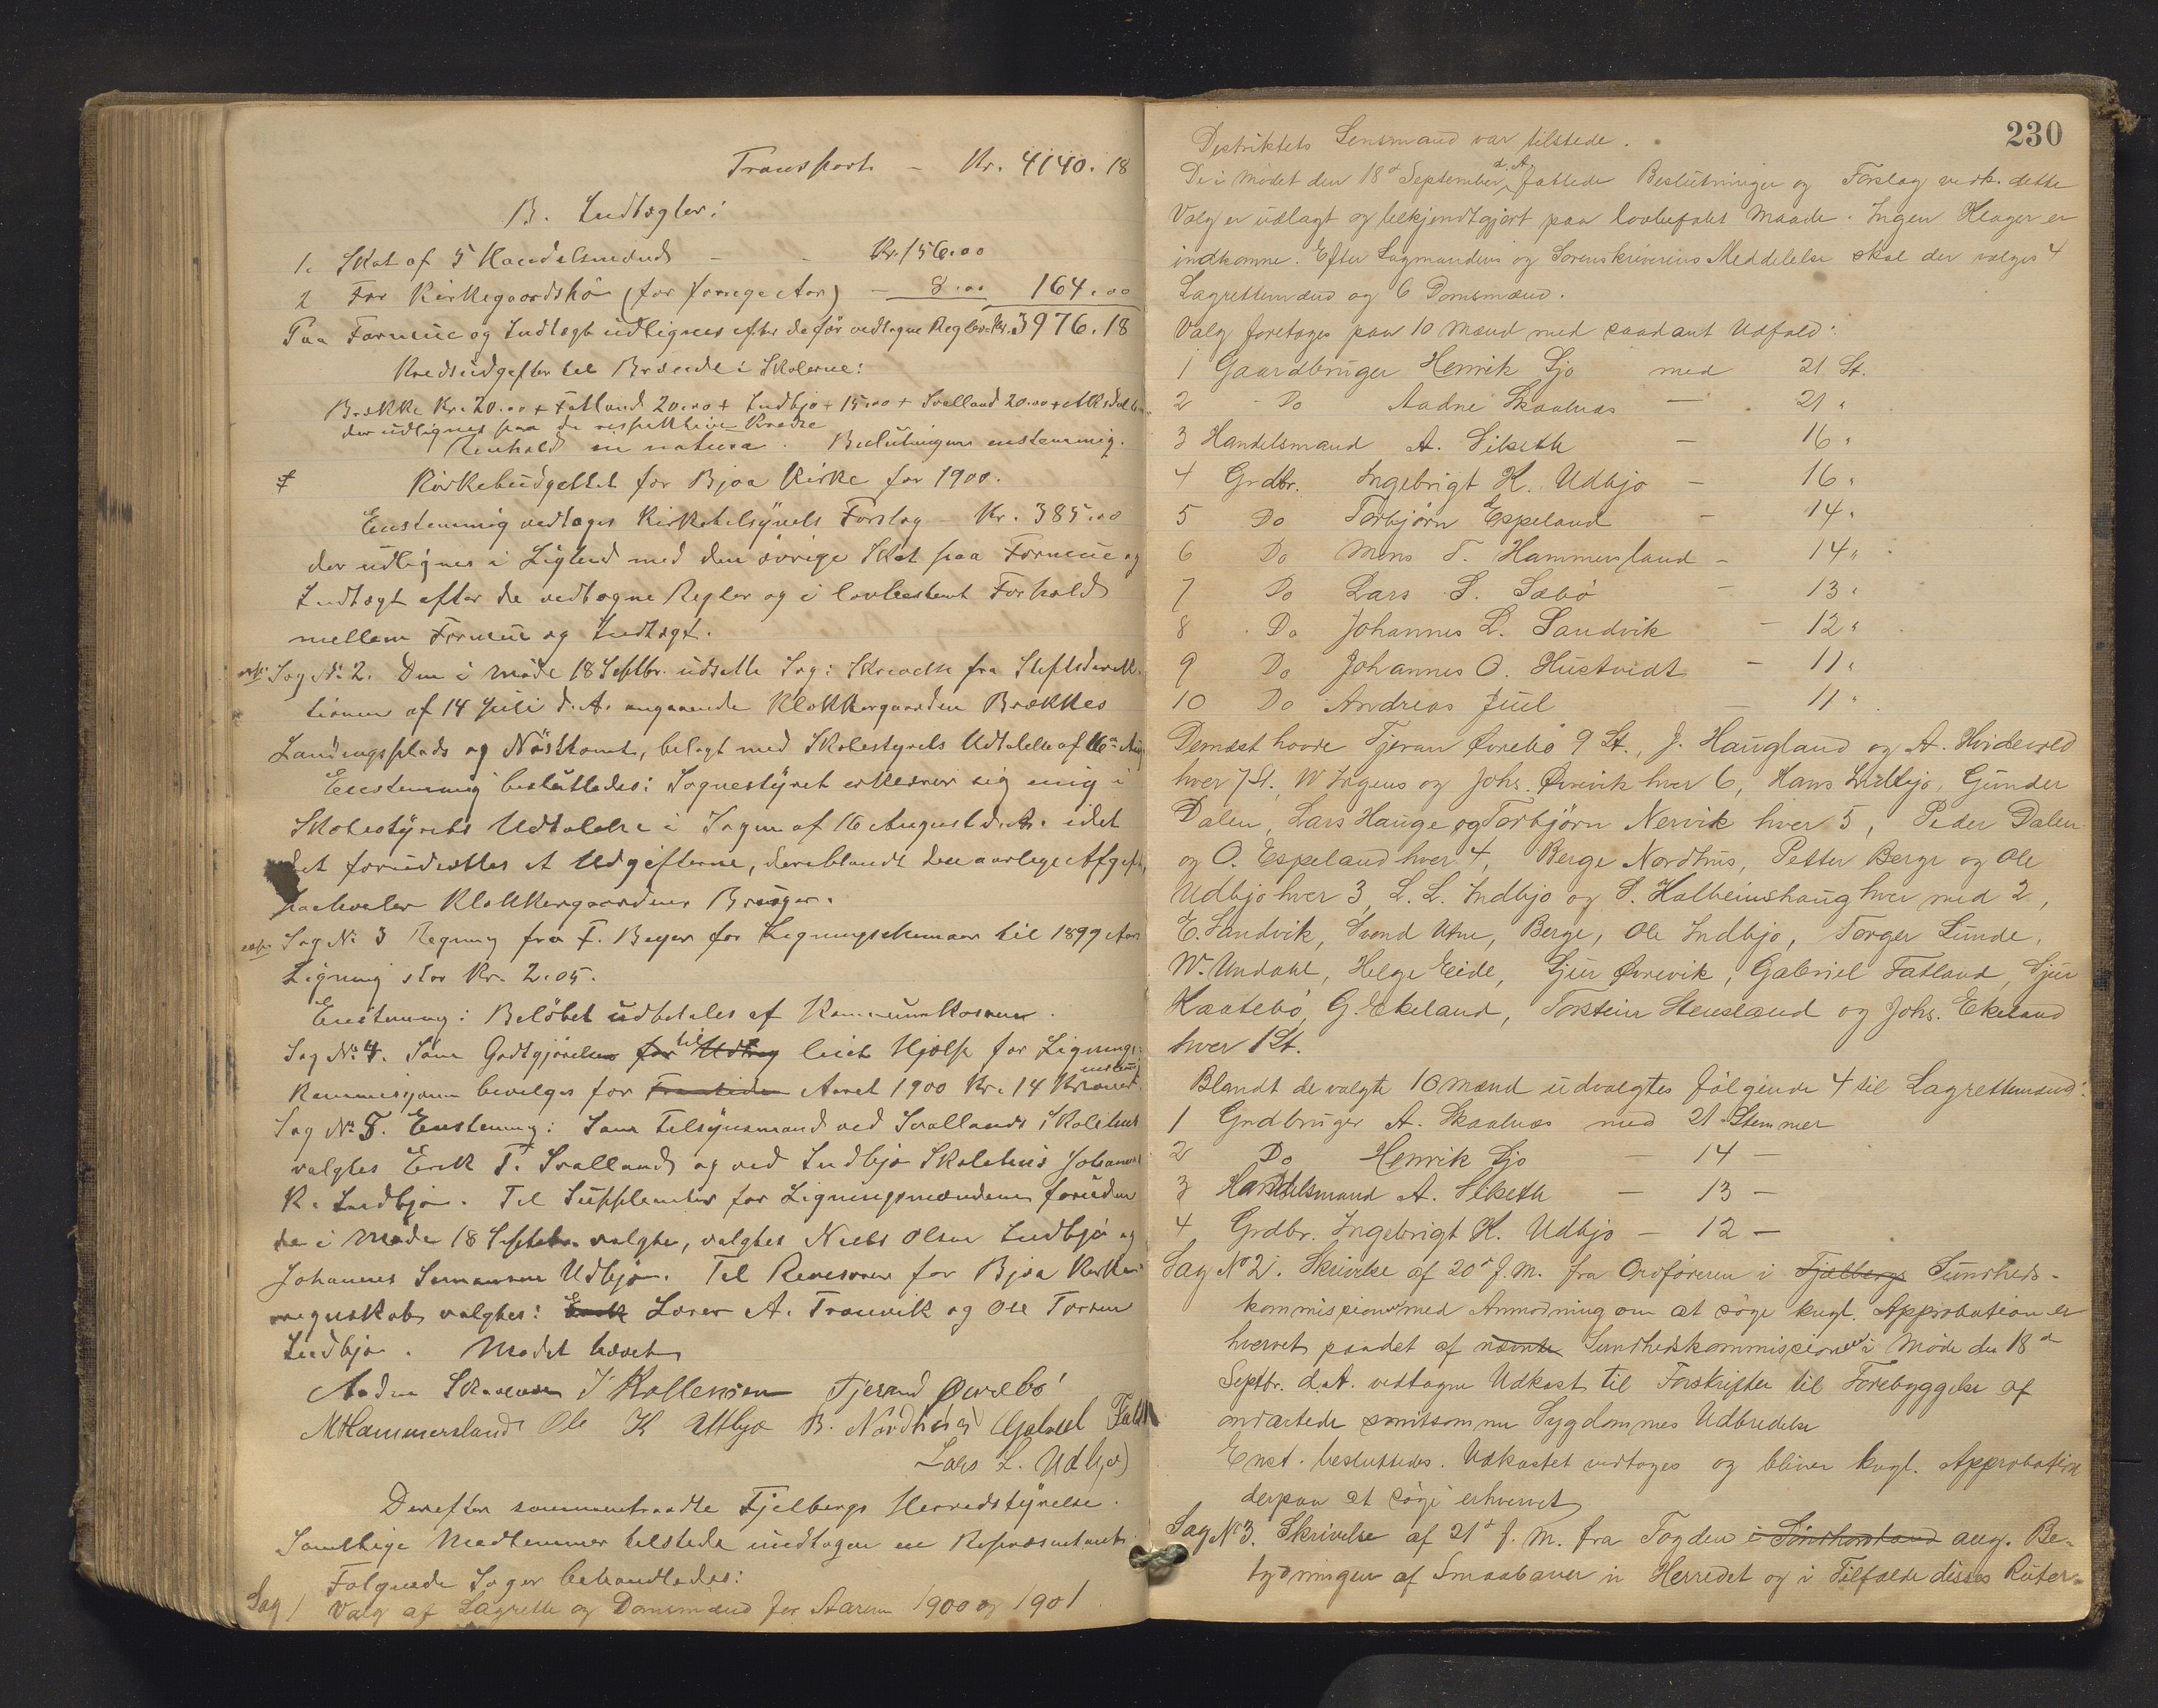 Transport - Kr. 4140.18
B. Indtægter:
1. Skat af 5 Handelsmænd - - Kr. 156.00
2 For Kirkegaardshö (for forrige Aar) - 8.00 164.00
Paa Formue og Indtægt udlignes efter de för vedtagne Regler Kr. 3976.18
Kredsudgifter til Brænde i Skolerne:
Brække Kr. 20.00 + Fatland 20.00 + Indbjo 15.00 + Svalland 20.00 +
der udlignes paa de respektive Kredse
Renhold in natura. Beslutningen enstemmig.
Kirkebudgettet for Bjoa Kirke for 1900.
Enstemmig vedtoges Kirketilsynets Forslag - Kr. 385.00
der udlignes i Lighed med den övrige Skat paa Formue og
Indtægt efter de vedtagne Regler og i lovbestemt Forhold
mellem Formue og Indtægt.
Sag No 2. Den i Möde 18 Septbr. udsatte Sag: Skrivelse fra Stiftsdirek-
tionen af 14 Juli d. A. angaaende Klokkergaarden Brækkes
Landingsplads og Nösttomt, belagt med Skolestyrets Udtalelse af 16de Aug
Enstemmig besluttedes: Sognestyret erklærer sig enig i
Skolestyrets Udtalelse i Sagen af 16 August d. A. idet
det forudsættes at Udgifterne, deriblandt den aarlige Afgift,
paahviler Klokkergaardens Bruger.
Sag No 3 Regning fra F. Beyer for Ligningsskemaer til 1899 Aars
Ligning stor Kr. 2.05.
Enstemmig: Belöbet udbetales af Kommunekassen.
Sag No 4. Som Godtgjörelse for til Udtog leiet Hjælp for Lignings-
kommisjonen bevilges for Fremtiden Aaret 1900 Kr. 14 Kroner enstemmig
Sag No 5. Enstemmig: Som Tilsynsmand ved Svallands Skolehus
valgtes Erik T. Svalland og ved Indbjo Skolehus Johannes
K. Indbjo. Til Supplanter for Ligningsmændene foruden
de i Möde 18 Septbr. valgte, valgtes Niels Olsen Indbjo og
Johannes Udbjo. Til Revisorer for Bjoa Kirke-
regnskab valgtes: Erik Lærer A. Tranvik og Ole Torsen
Indbjo. Mödet hævet
Aadne Skaalnæs Tjerand Øvrebö
M Hammersland Ole K Utbjo B. Nordhus Gabriel Fatl
Lars L. Udbjo
Derefter sammentraadte Fjelbergs Herredstyrelse.
Samtlige Medlemmer tilstede undtagen en Repræsentant.
Følgende Sager behandledes:
Sag 1 Valg af Lagrette og Domsmænd for Aarene 1900 og 1901.
230
Distriktets Lensmand var tilstede.
De i Mödet den 18d September d. A. fattede Beslutninger og Forslag vedk. dette
Valg er udlagt og bekjendtgjort paa lovbefalet Maade. Ingen Klager er
indkomne. Efter Lagmandens og Sorenskriverens Meddelelse skal der vælges 4
Lagrettemænd og 6 Domsmænd.
Valg foretoges paa 10 Mænd med saadant Udfald:
1 Gaardbruger Henrik Sjo med 21 St.
2 Do Aadne Skaalnæs — 21 "
3 Handelsmand A. Silseth — 16 "
4 Grdbr. Ingebrigt K. Udbjo — 16 "
5 Do Torbjörn Eppeland — 14 "
6 Do Mons T. Hammersland — 14 "
7 Do Lars S. Sæbö — 13 "
8 Do Johannes L. Sandvik — 12 "
9 Do Johannes O. Hustvedt — 11 "
10 Do Andreas Juul — 11 "
Dernæst havde Tjeran Øvrebö 9 St., J. Haugland og A. Hvidevold
hver 7 St., W Irgens og Johs. Øvrevik hver 6, Hans Indbjo, Gunder
Dalen, Lars Hauge og Torbjörn Nervik hver 5, Peder Dalen
og O. Espeland hver 4, Berge Nordhus, Petter Berge og Ole
Udbjo hver 3, L. L. Indbjo og S. Halbeinshaug hver med 2,
E. Sandvik, Svend Utne, Berge, Ole Indbjo, Torger Lunde,
W. Undahl, Helge Eide, Sjur Øvrevik, Gabriel Fatland, Sjur
Kaatebö, G. Ekeland, Torstein Stensland og Johs. Ekeland
hver 1 St.
Blandt de valgte 10 Mænd udvalgtes fölgende 4 til Lagrettemænd:
1 Grdbruger A. Skaalnæs med 21 Stemmer
2 Do Henrik Sjo — 14 —
3 Handelsmand A. Silseth — 13 —
4 Grdbr. Ingebrigt K. Udbjo — 12 —
Sag No 2. Skrivelse af 20d f. M. fra Ordföreren i Fjelbergs Sundheds-
kommission med Anmodning om at söge kngl. Approbation er
hvervet paa det af nævnte Sundhedskommission i Möde den 18d
Septbr. d. A. vedtagne Udkast til Forskrifter til Forebyggelse af
ondartede smitsomme Sygdommes Udbredelse
Enst. besluttedes. Udkastet vedtoges og bliver kngl. Approbation
derpaa at söge erhvervet
Sag No 3. Skrivelse af 21d f. M. fra Fogden i Söndhordland ang. Be-
tydningen af Smaabaner i Herredet og i Tilfælde disses Ruter-